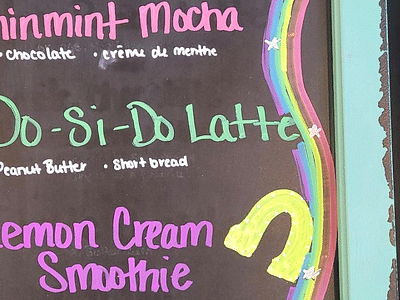 hinmint Mocha
• chocolate • crème de menthe
Do-Si-Do Latte
Peanut Butter • Shortbread
emon Cream
Smoothie